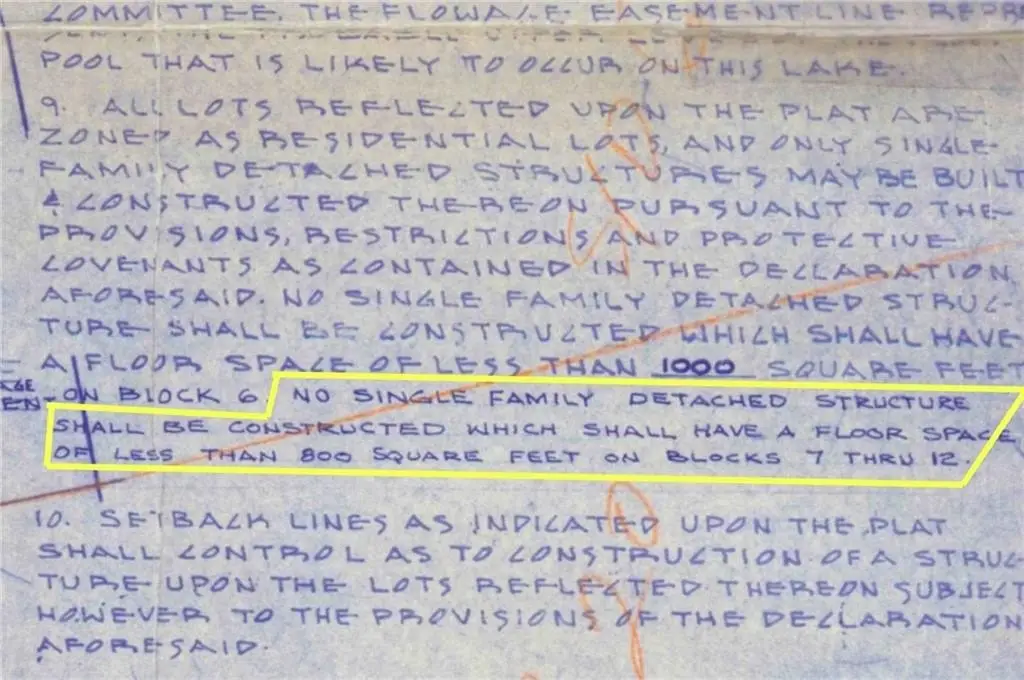 COMMITTEE. THE FLOWAGE EASEMENT LINE REPRE
POOL THAT IS LIKELY TO OCCUR ON THIS LAKE.
9. ALL LOTS REFLECTED UPON THE PLAT ARE
ZONED AS RESIDENTIAL LOTS, AND ONLY SINGLE-
FAMILY DETACHED STRUCTURES MAY BE BUILT
& CONSTRUCTED THEREON PURSUANT TO THE
PROVISIONS, RESTRICTIONS AND PROTECTIVE
COVENANTS AS CONTAINED IN THE DECLARATION
AFORESAID. NO SINGLE FAMILY DETACHED STRUC-
TURE SHALL BE CONSTRUCTED WHICH SHALL HAVE
A FLOOR SPACE OF LESS THAN 1000 SQUARE FEET
ON BLOCK 6 NO SINGLE FAMILY DETACHED STRUCTURE
SHALL BE CONSTRUCTED WHICH SHALL HAVE A FLOOR SPACE
OF LESS THAN 800 SQUARE FEET ON BLOCKS 7 THRU 12.
10. SETBACK LINES AS INDICATED UPON THE PLAT
SHALL CONTROL AS TO CONSTRUCTION OF A STRUC-
TURE UPON THE LOTS REFLECTED THEREON SUBJECT
HOWEVER TO THE PROVISIONS OF THE DECLARATION
AFORESAID.